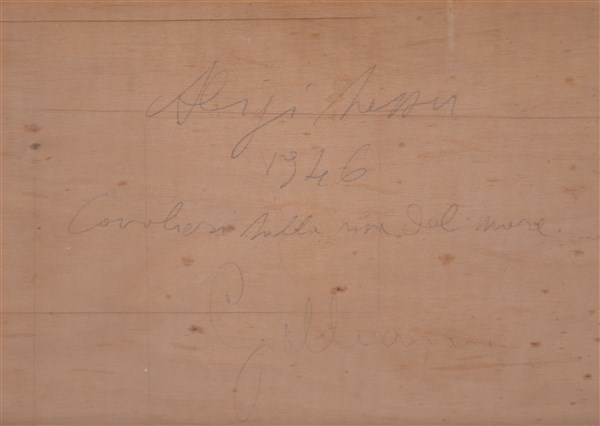 Aligi Sassu
1946
Cavalieri sulla riva del mare